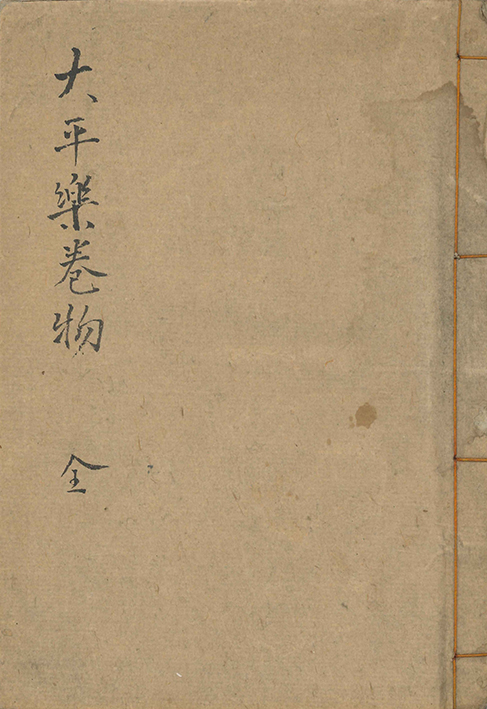 大平樂巻物 全